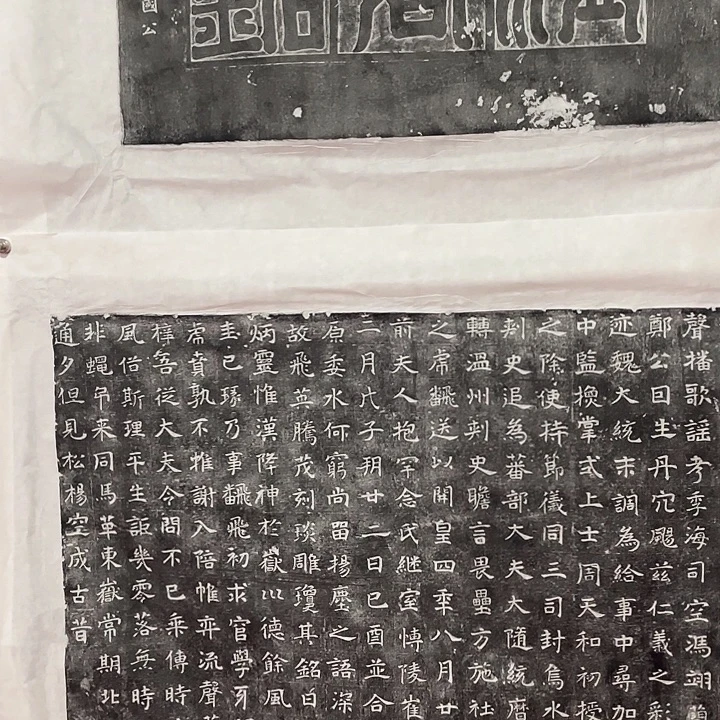 國公
聲播歌謡考季海司空馮翊
鄭公曰生丹穴颺茲仁義之彩
迹魏大統末調為給事中尋加
中監換掌式上士周天和初授
之除使持節儀同三司封鳥水
刾史追為蕃部大夫大隨統曆
轉溫州刾史瞻言畏壘方施社
之席飜送以開皇四年八月廿
前夫人抱罕念氏継室愽陵崔
二月戊子朔廿二日己酉並合
原委水何窮尚畱揚塵之語深
故飛英騰茂刻琰雕瓊其銘曰
炳靈惟漢降神於嶽以德餘風
圭已琢乃事飜飛初求官學牙
席賁孰不惟謝入陪帷弈流聲
善從大夫令問不已乘傳時
風俗斯理平生詎幾零落無時
非蠅弔来同馬革東嶽常期北
通夕但見松楊空成古昔